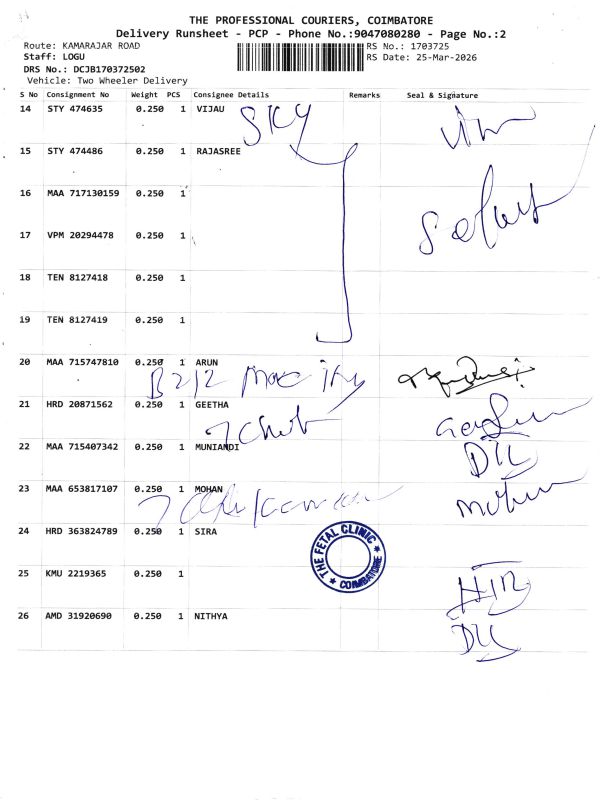 THE PROFESSIONAL COURIERS, COIMBATORE
Delivery Runsheet - PCP - Phone No.:9047080280 - Page No.:2
Route: KAMARAJAR ROAD RS No.: 1703725
Staff: LOGU RS Date: 25-Mar-2026
DRS No.: DCJB170372502
Vehicle: Two Wheeler Delivery
S No Consignment No Weight PCS Consignee Details Remarks Seal & Signature
14 STY 474635 0.250 1 VIJAU SKY
15 STY 474486 0.250 1 RAJASREE
16 MAA 717130159 0.250 1
17 VPM 20294478 0.250 1
18 TEN 8127418 0.250 1
19 TEN 8127419 0.250 1
20 MAA 715747810 0.250 1 ARUN
B212
21 HRD 20871562 0.250 1 GEETHA
22 MAA 715407342 0.250 1 MUNIANDI
23 MAA 653817107 0.250 1 MOHAN
24 HRD 363824789 0.250 1 SIRA
THE FETAL CLINIC
COIMBATORE
25 KMU 2219365 0.250 1
26 AMD 31920690 0.250 1 NITHYA